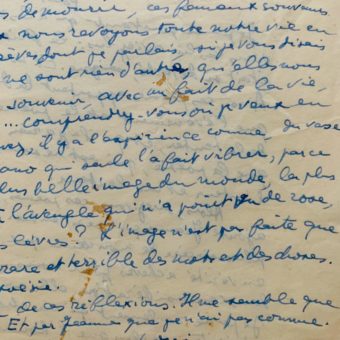 de mourir, ces fameux souvenirs
nous revoyons toute notre vie en
rêves dont je parlais, si je vous disais
ne sont rien d'autre, qu'elles nous
souvenir, avec un fait de la vie,
... comprendrez-vous où je veux en
il y a l'expérience comme du vase
piano qui seule l'a fait vibrer, parce
plus belle image du monde, la plus
l'aveugle qui n'a point vu de rose,
lèvres? L'image n'est pas faite que
rare et terrible des mots et des choses.
poésie.
de ces réflexions. Il me semble que
Et par Jeanne que je n'ai pas connue.